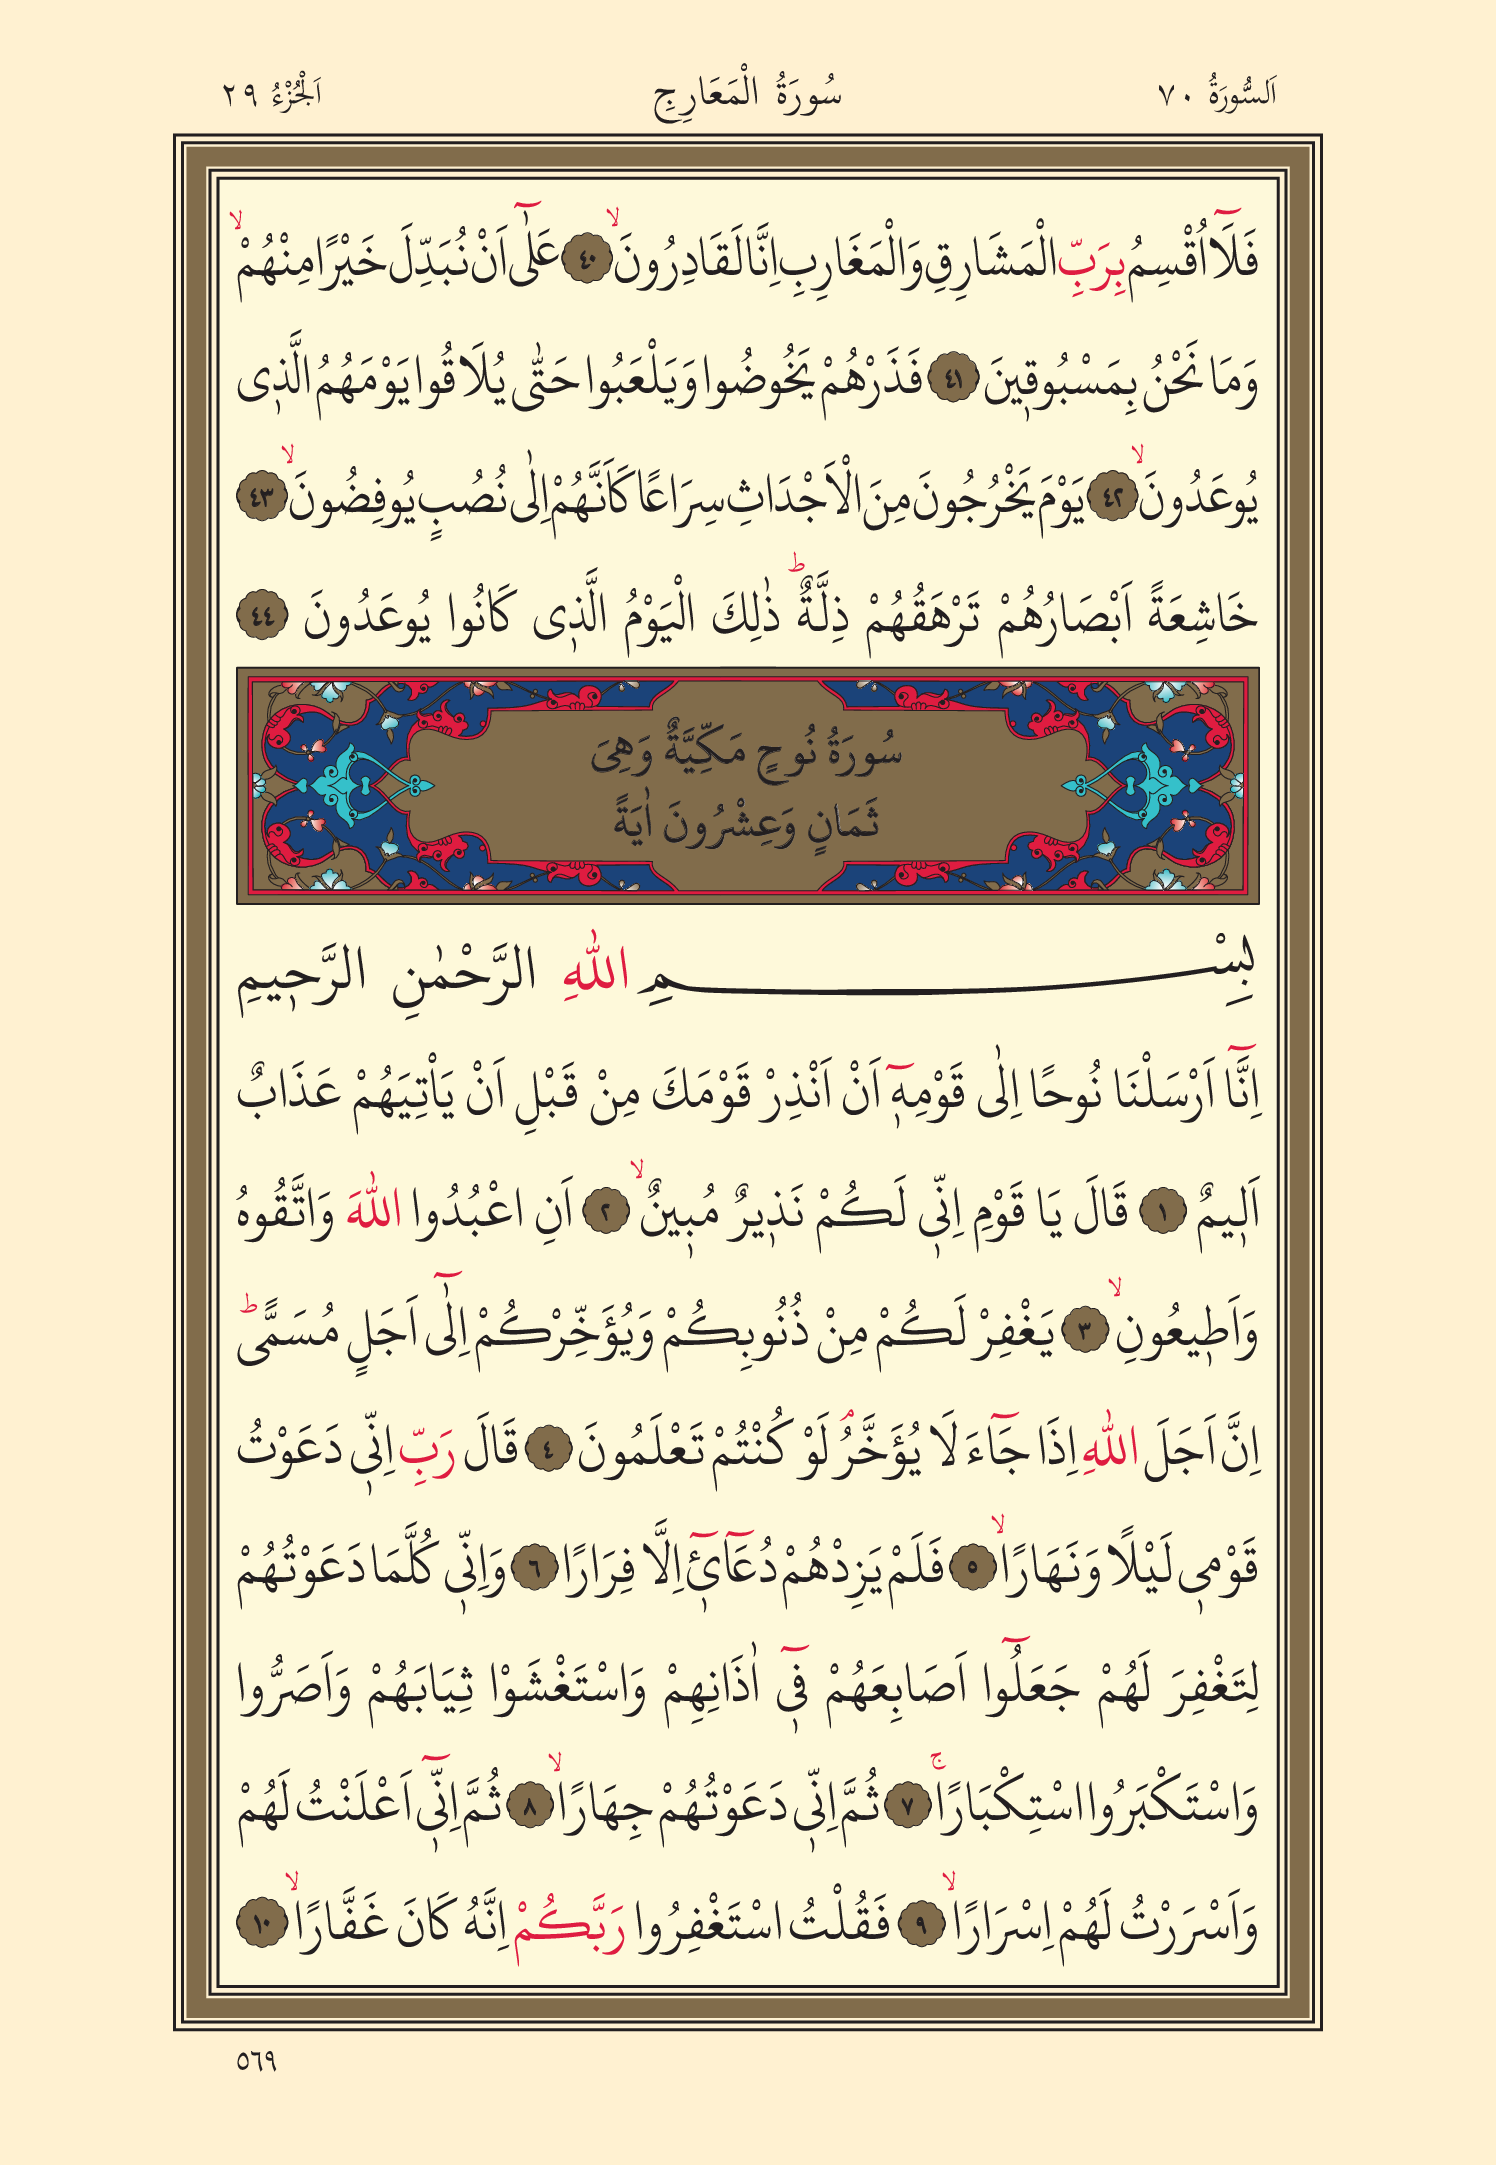 اَلسُّورَةُ ٧٠ سُورَةُ الْمَعَارِجِ اَلْجُزْءُ ٢٩
فَلَٓا اُقْسِمُ بِرَبِّ الْمَشَارِقِ وَالْمَغَارِبِ اِنَّا لَقَادِرُونَۙ ٤٠ عَلٰٓى اَنْ نُبَدِّلَ خَيْرًا مِنْهُمْۙ
وَمَا نَحْنُ بِمَسْبُوق۪ينَ ٤١ فَذَرْهُمْ يَخُوضُوا وَيَلْعَبُوا حَتّٰى يُلَاقُوا يَوْمَهُمُ الَّذ۪ى
يُوعَدُونَۙ ٤٢ يَوْمَ يَخْرُجُونَ مِنَ الْاَجْدَاثِ سِرَاعًا كَاَنَّهُمْ اِلٰى نُصُبٍ يُوفِضُونَۙ ٤٣
خَاشِعَةً اَبْصَارُهُمْ تَرْهَقُهُمْ ذِلَّةٌۜ ذٰلِكَ الْيَوْمُ الَّذ۪ى كَانُوا يُوعَدُونَ ٤٤
سُورَةُ نُوحٍ مَكِّيَّةٌ وَهِىَ
ثَمَانٍ وَعِشْرُونَ اٰيَةً
بِسْمِ اللّٰهِ الرَّحْمٰنِ الرَّح۪يمِ
اِنَّٓا اَرْسَلْنَا نُوحًا اِلٰى قَوْمِه۪ٓ اَنْ اَنْذِرْ قَوْمَكَ مِنْ قَبْلِ اَنْ يَاْتِيَهُمْ عَذَابٌ
اَل۪يمٌ ١ قَالَ يَا قَوْمِ اِنّ۪ى لَكُمْ نَذ۪يرٌ مُب۪ينٌۙ ٢ اَنِ اعْبُدُوا اللّٰهَ وَاتَّقُوهُ
وَاَط۪يعُونِۙ ٣ يَغْفِرْ لَكُمْ مِنْ ذُنُوبِكُمْ وَيُؤَخِّرْكُمْ اِلٰٓى اَجَلٍ مُسَمًّىۜ
اِنَّ اَجَلَ اللّٰهِ اِذَا جَٓاءَ لَا يُؤَخَّرُۢ لَوْ كُنْتُمْ تَعْلَمُونَ ٤ قَالَ رَبِّ اِنّ۪ى دَعَوْتُ
قَوْم۪ى لَيْلًا وَنَهَارًاۙ ٥ فَلَمْ يَزِدْهُمْ دُعَٓائ۪ٓى اِلَّا فِرَارًا ٦ وَاِنّ۪ى كُلَّمَا دَعَوْتُهُمْ
لِتَغْفِرَ لَهُمْ جَعَلُٓوا اَصَابِعَهُمْ ف۪ٓى اٰذَانِهِمْ وَاسْتَغْشَوْا ثِيَابَهُمْ وَاَصَرُّوا
وَاسْتَكْبَرُوا اسْتِكْبَارًاۚ ٧ ثُمَّ اِنّ۪ى دَعَوْتُهُمْ جِهَارًاۙ ٨ ثُمَّ اِنّ۪ٓى اَعْلَنْتُ لَهُمْ
وَاَسْرَرْتُ لَهُمْ اِسْرَارًاۙ ٩ فَقُلْتُ اسْتَغْفِرُوا رَبَّكُمْ اِنَّهُ كَانَ غَفَّارًاۙ ١٠
٥٦٩